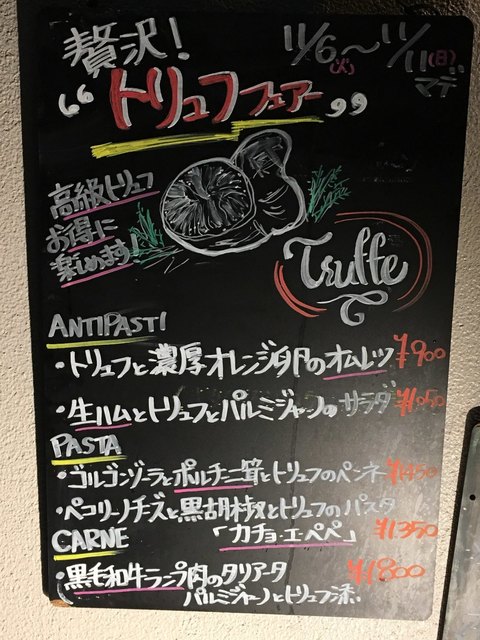 贅沢!
11/6(火)〜11/11(日)
マデ
“トリュフフェアー”
高級トリュフ
お得に
楽しめます!
Truffe
ANTIPASTI
・トリュフと濃厚オレンジ卵のオムレツ ¥900
・生ハムとトリュフとパルミジャーノのサラダ ¥1050
PASTA
・ゴルゴンゾーラとポルチーニ茸とトリュフのペンネ
・ペコリーノチーズと黒胡椒とトリュフのパスタ
「カチョ・エ・ペペ」 ¥1350
CARNE
・黒毛和牛ランプ肉のタリアータ ¥1800
パルミジャーノとトリュフ添え